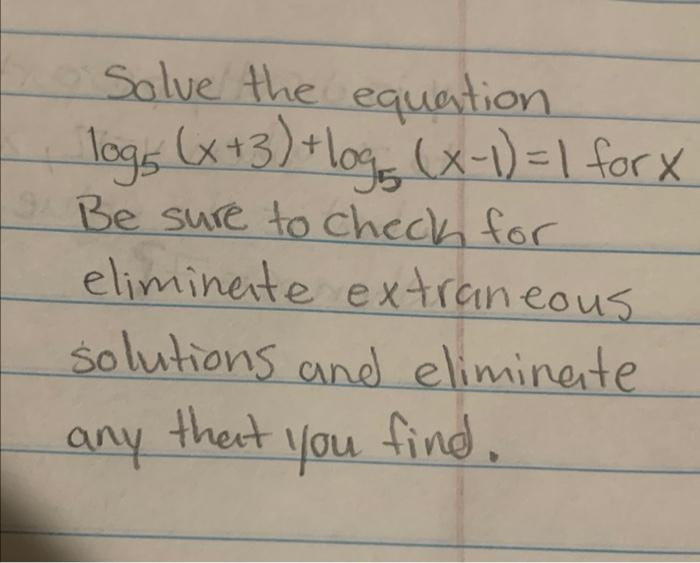 Solve the equation
log₅ (x+3)+log₅ (x-1)=1 for x
Be sure to check for
eliminate extraneous
solutions and eliminate
any that you find.